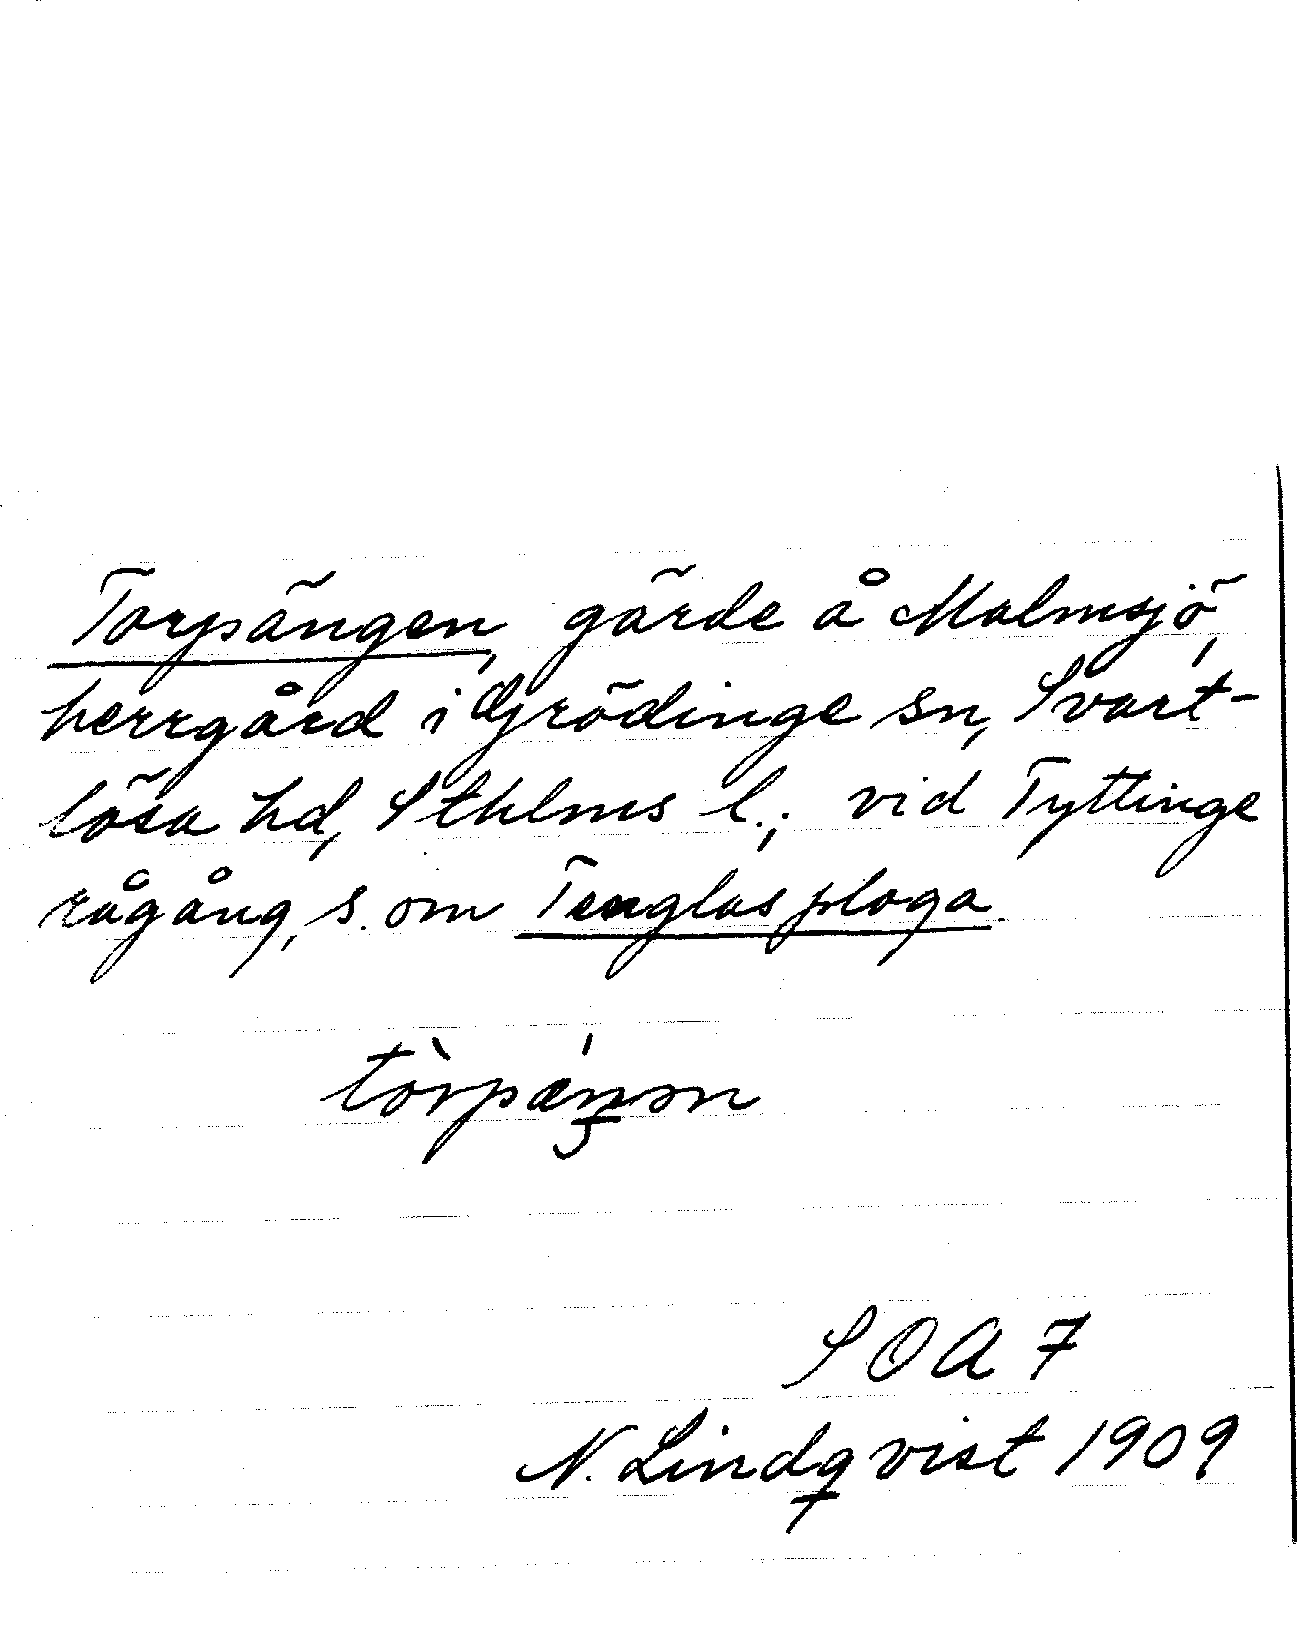 Torpängen, gärde å Malmsjö,
herrgård i Grödinge sn, Svart-
lösa hd, Sthlms l.; vid Tyttinge
rågång, s. om Tenglas ploga.
tòrpǽŋən
SOA 7
N. Lindqvist 1909